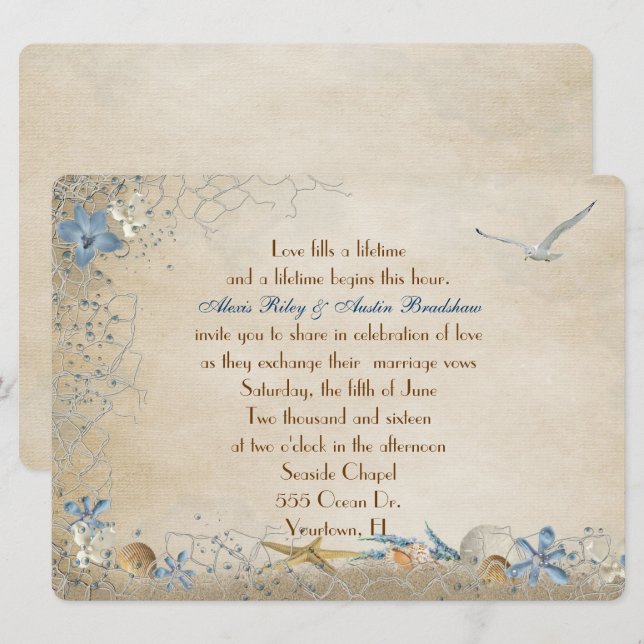 Love fills a lifetime
and a lifetime begins this hour.
Alexis Riley & Austin Bradshaw
invite you to share in celebration of love
as they exchange their marriage vows
Saturday, the fifth of June
Two thousand and sixteen
at two o'clock in the afternoon
Seaside Chapel
555 Ocean Dr.
Yourtown, Fl